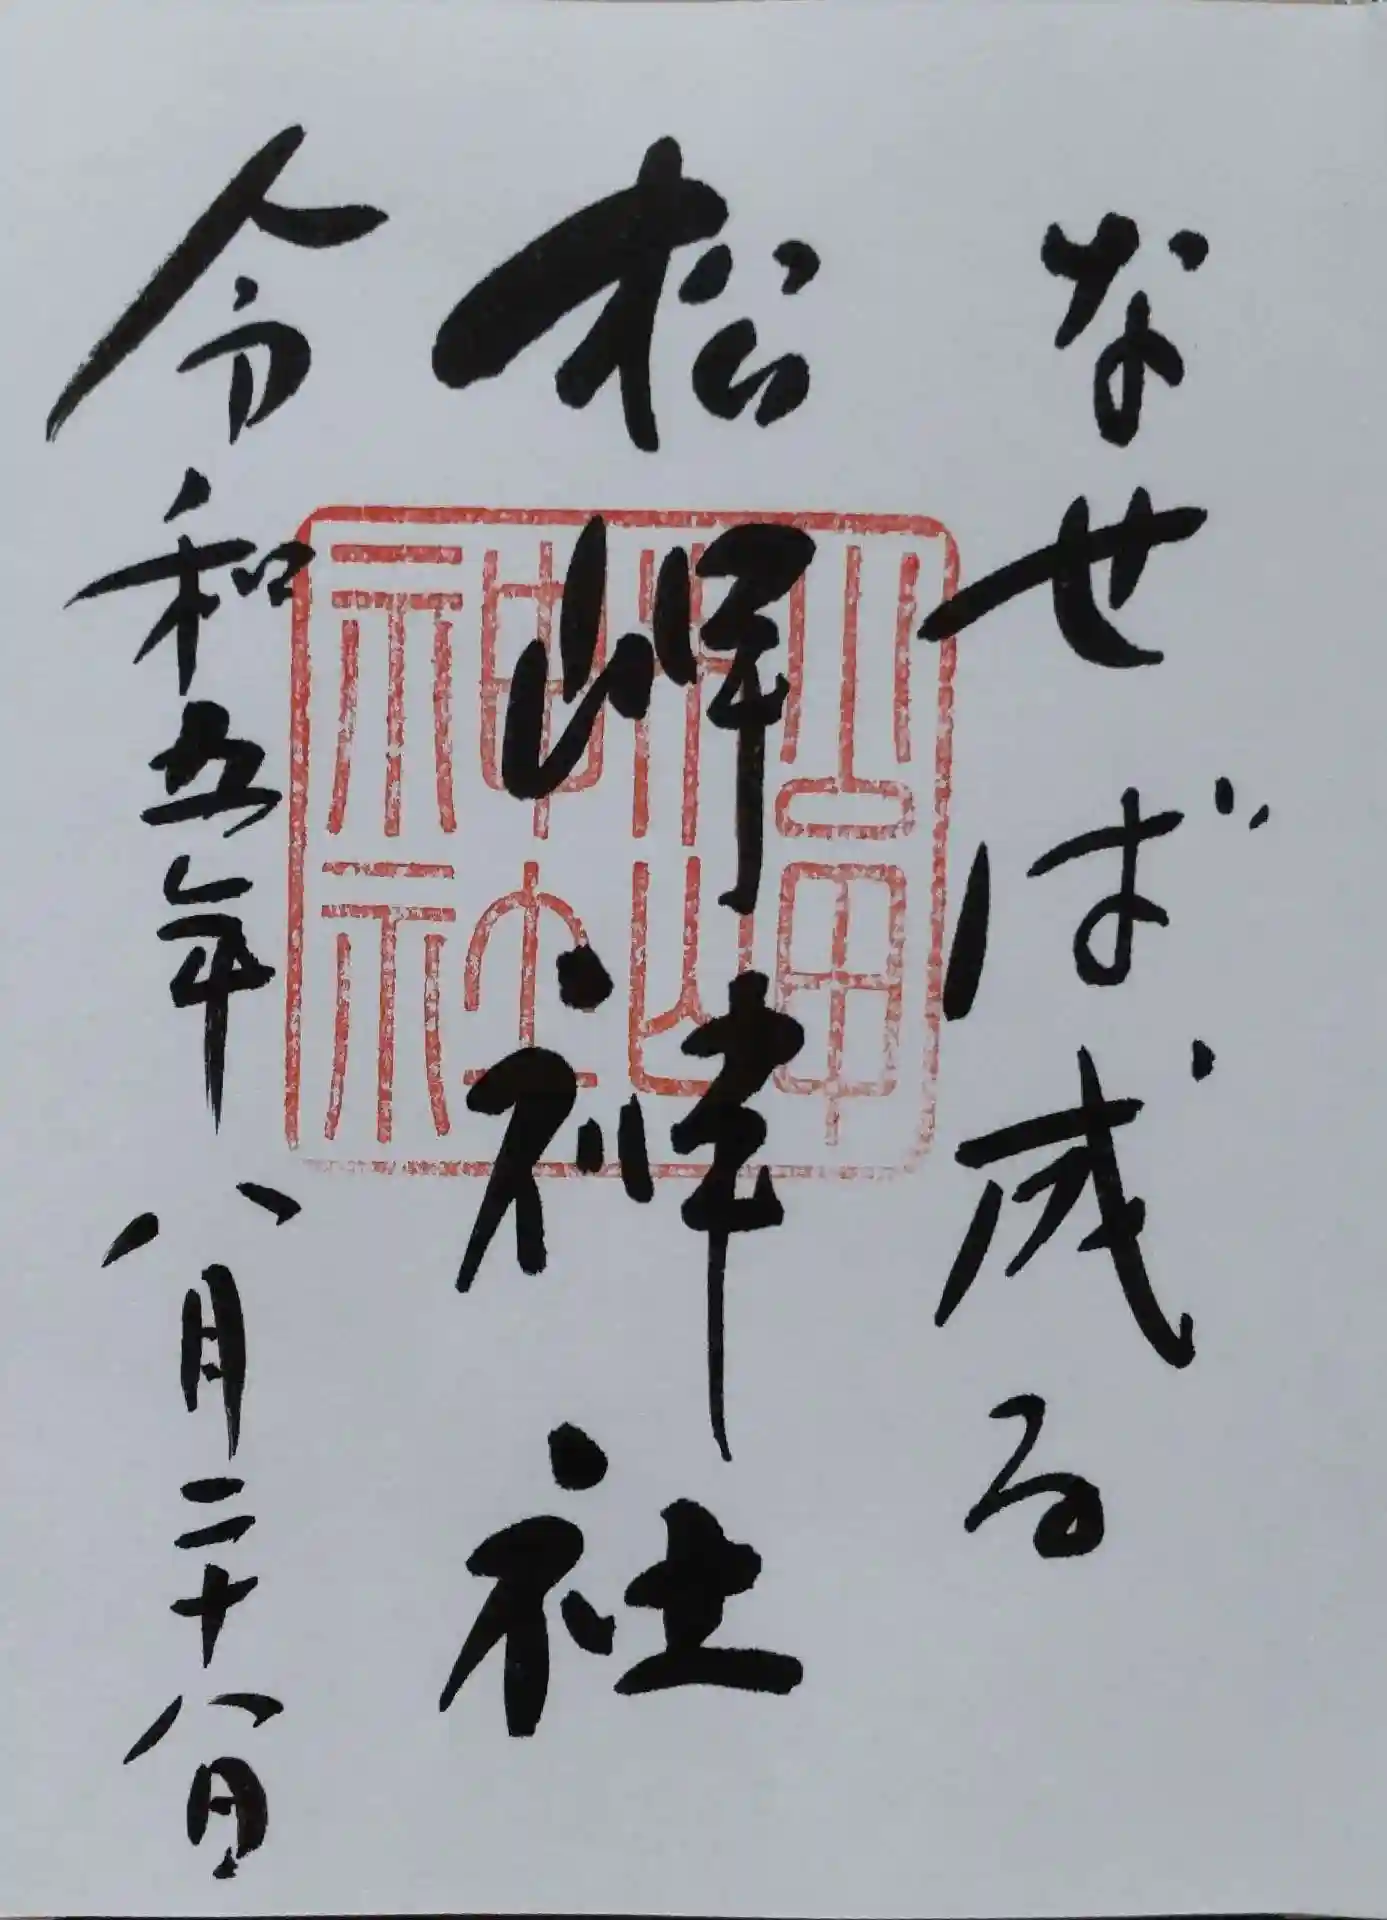 なせば成る
松岬神社
令和五年八月二十八日
松岬
神社